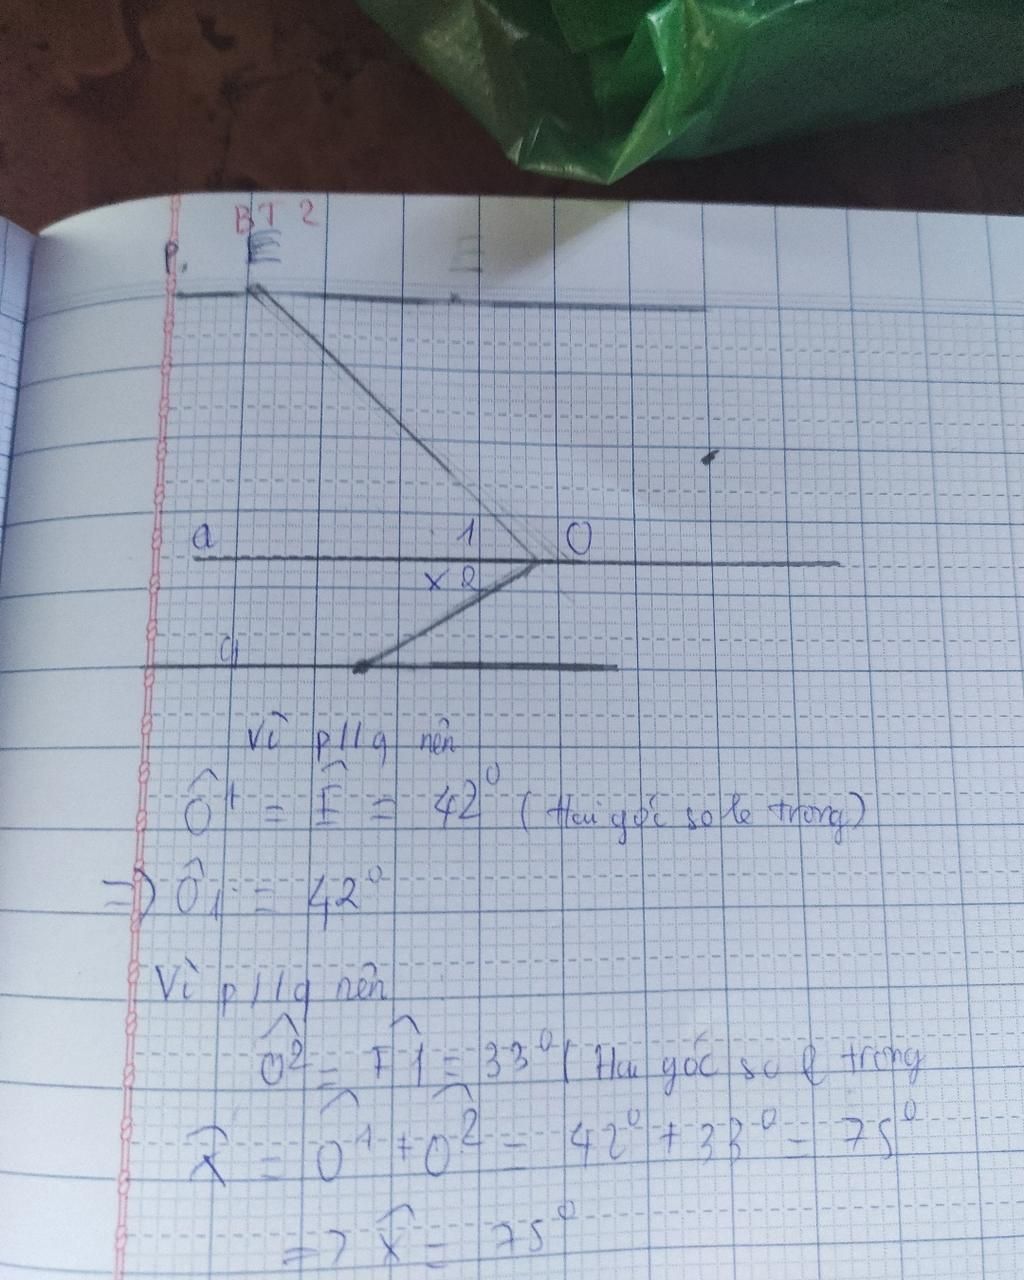 BT 2
P. E E
a 1 O
x 2
q
Vì p//q nên
Ô1 = Ê = 42⁰ (Hai góc so le trong)
=> Ô1 = 42⁰
Vì p//q nên
Ô2 = F̂1 = 33⁰ (Hai góc so l trong
x̂ = Ô1 + Ô2 = 42⁰ + 33⁰ = 75⁰
=> x̂ = 75⁰